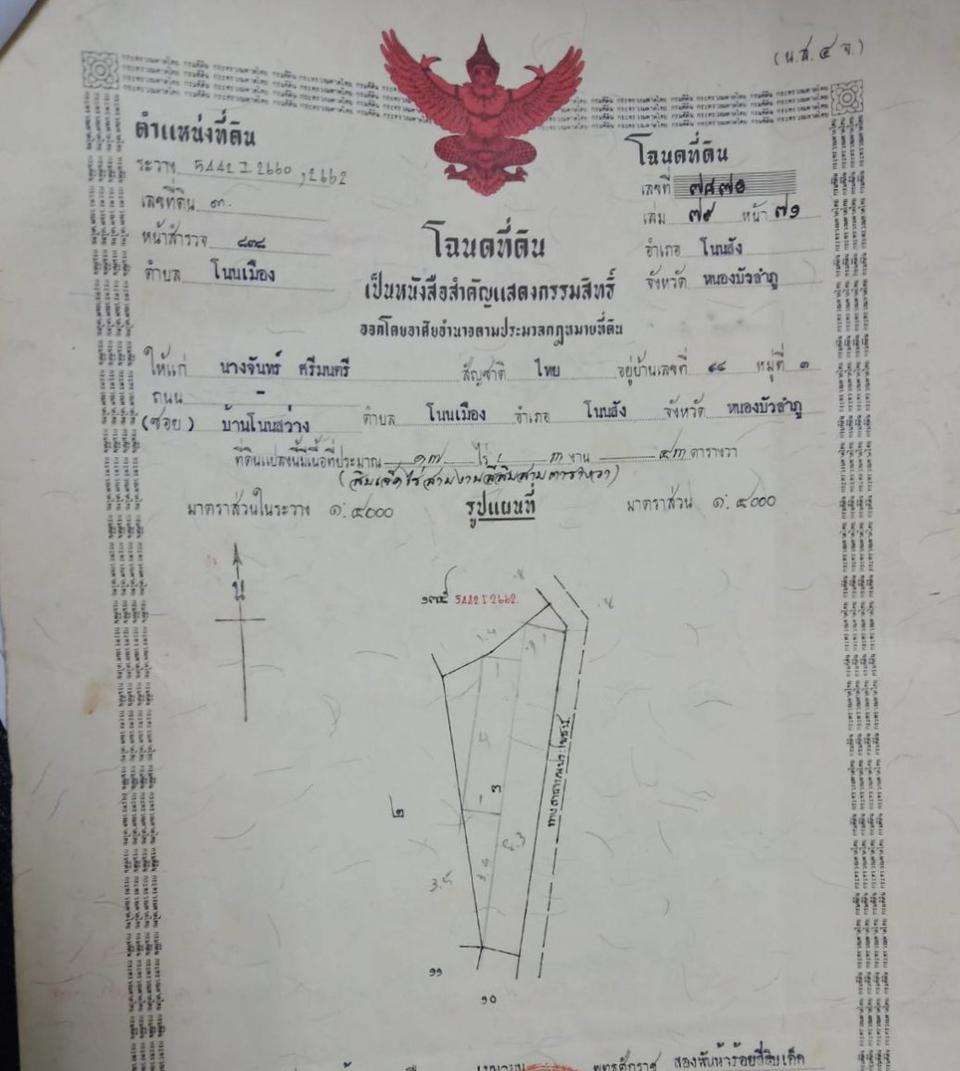 (น.ส. ๔ จ.)
ตำแหน่งที่ดิน
ระวาง 5442 I 2660, 2662
เลขที่ดิน ๓
หน้าสำรวจ ๘๓๘
ตำบล โนนเมือง
โฉนดที่ดิน
เลขที่ ๗๘๗๑
เล่ม ๗๙ หน้า ๗๑
อำเภอ โนนสัง
จังหวัด หนองบัวลำภู
โฉนดที่ดิน
เป็นหนังสือสำคัญแสดงกรรมสิทธิ์
ออกโดยอาศัยอำนาจตามประมวลกฎหมายที่ดิน
ให้แก่ นางจันทร์ ศรีมนตรี สัญชาติ ไทย อยู่บ้านเลขที่ ๔๔ หมู่ที่ ๓
ถนน -
(ซอย) บ้านโนนสว่าง ตำบล โนนเมือง อำเภอ โนนสัง จังหวัด หนองบัวลำภู
ที่ดินแปลงนี้มีเนื้อที่ประมาณ ๑๗ ไร่ ๓ งาน ๔๓ ตารางวา
(สิบเจ็ดไร่สามงานสี่สิบสามตารางวา)
มาตราส่วนในระวาง ๑:๔๐๐๐ รูปแผนที่ มาตราส่วน ๑:๔๐๐๐
น
๑๓๕ 5442 I 2662
ทางสาธารณประโยชน์
๓
๒
3.5
๑๑
๑๐
พุทธศักราช สองพันห้าร้อยสี่สิบเก็ด